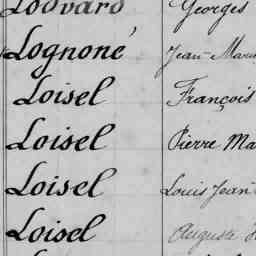 Georges
Lognoné Jean-Marie
Loisel François
Loisel Pierre Ma
Loisel Louis Jean
Loisel Auguste